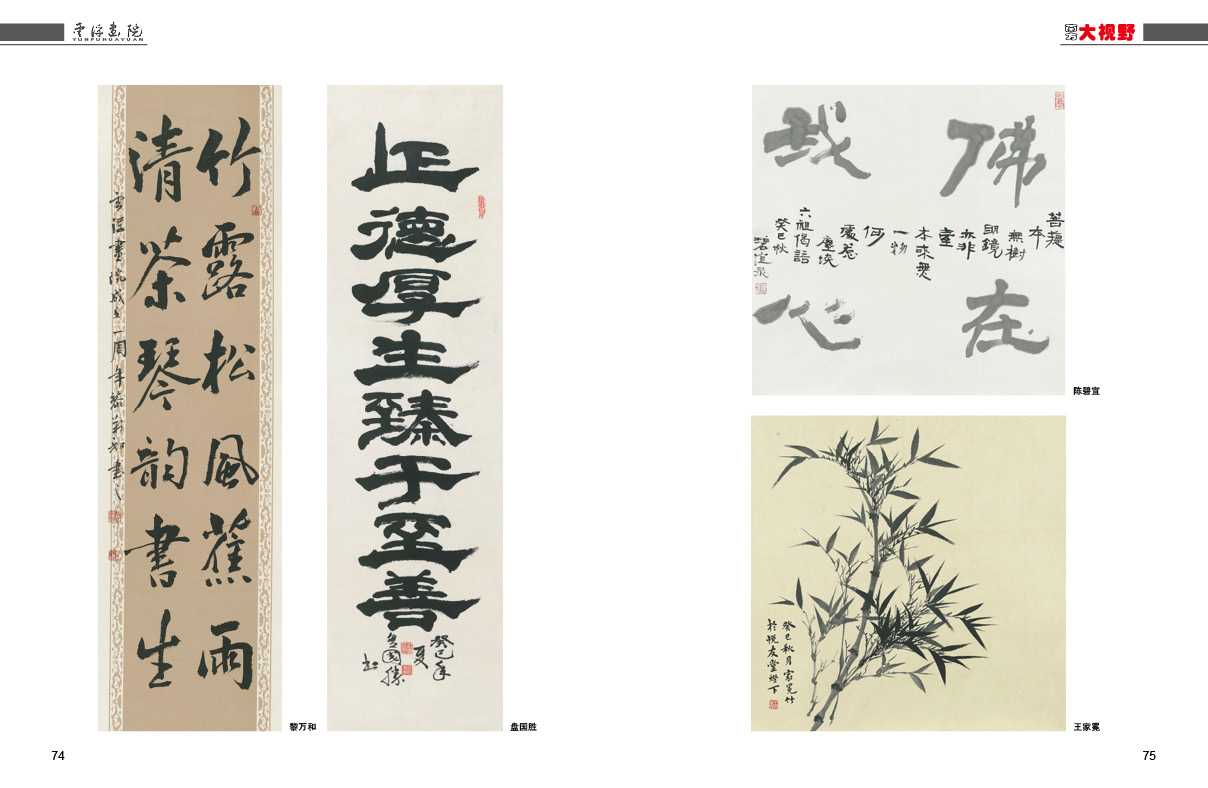 雲浮畫院
YUNFUHUAYUAN
大视野
竹露松風蕉雨
清茶琴韵書生
雲浮畫院成立一周年黎万和書
黎万和
正德厚生臻于至善
癸巳年
夏
盘國勝
盘国胜
佛在
我心
菩提
本
無樹
明鏡
亦非
臺
本來無
一物
何
處惹
塵埃
六祖偈語
癸巳秋
碧宜录
陈碧宜
癸巳秋月家冕竹
於悦友堂燈下
王家冕
74
75